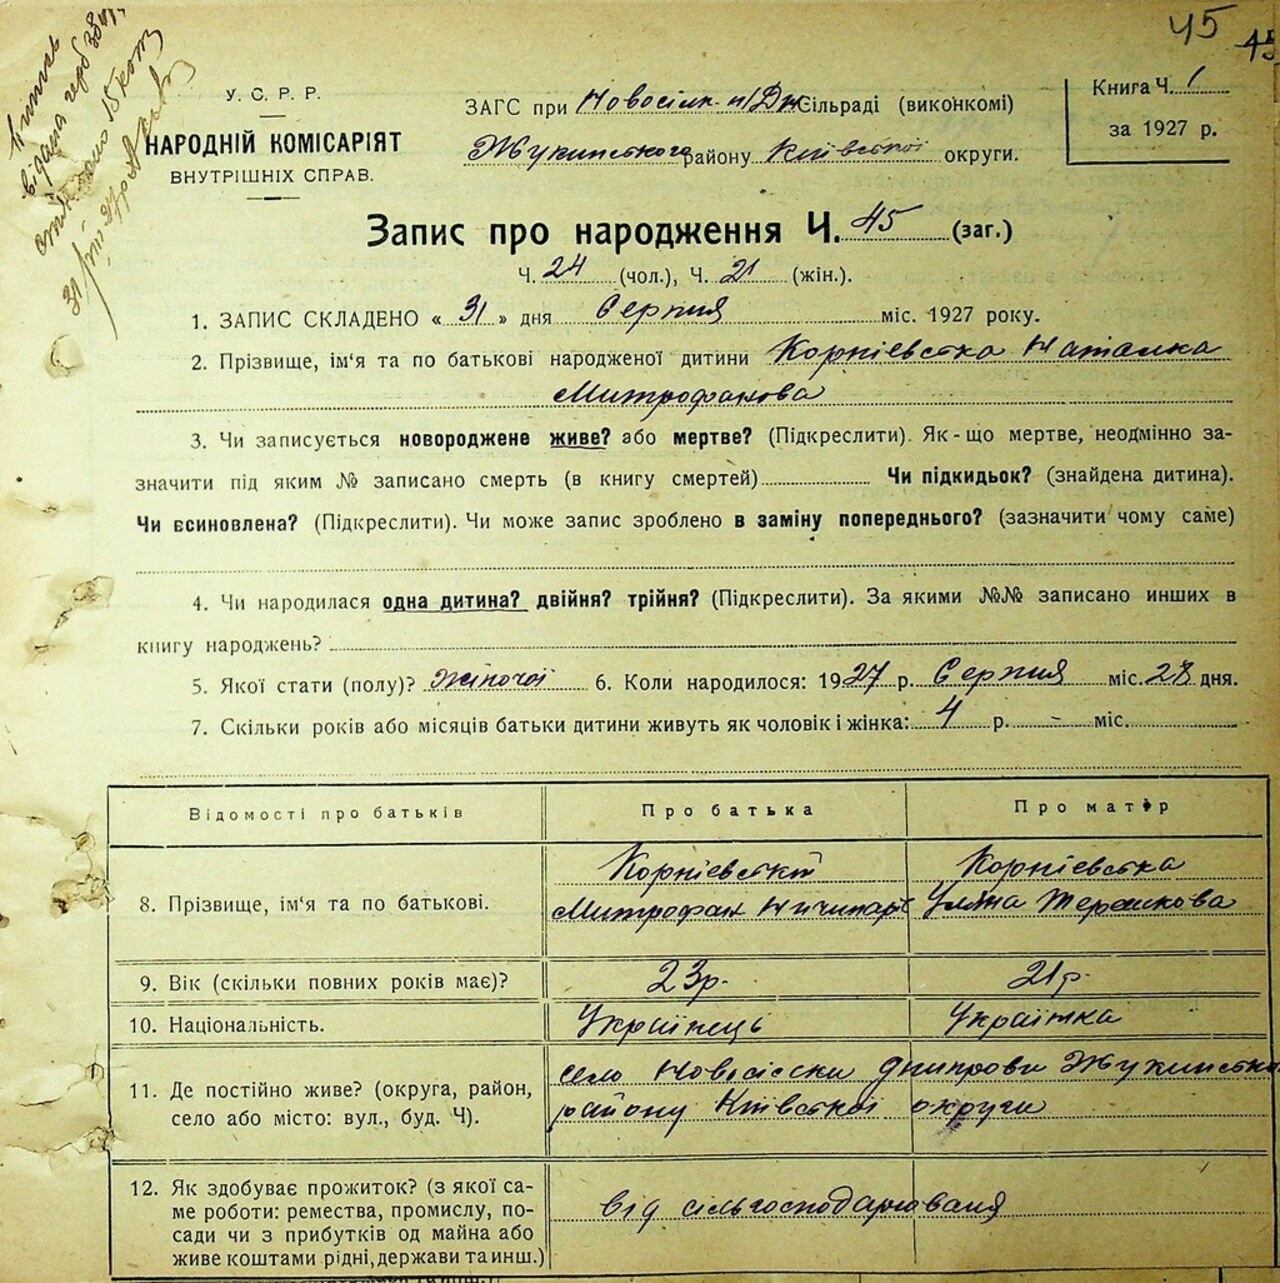 45
45
У. С. Р. Р.
НАРОДНІЙ КОМІСАРІЯТ
ВНУТРІШНІХ СПРАВ.
ЗАГС при Новосілк. н/Дн Сільраді (виконкомі)
Жукинського району Київської округи.
Книга Ч. 1
за 1927 р.
Запис про народження Ч. 45 (заг.)
Ч. 24 (чол.), Ч. 21 (жін.).
1. ЗАПИС СКЛАДЕНО « 31 » дня Серпня міс. 1927 року.
2. Прізвище, ім'я та по батькові народженої дитини Корніевська Наталка
Митрофанова
3. Чи записується новороджене живе? або мертве? (Підкреслити). Як-що мертве, неодмінно за-
значити під яким № записано смерть (в книгу смертей) Чи підкидьок? (знайдена дитина).
Чи всиновлена? (Підкреслити). Чи може запис зроблено в заміну попереднього? (зазначити чому саме)
4. Чи народилася одна дитина? двійня? трійня? (Підкреслити). За якими №№ записано инших в
книгу народжень?
5. Якої стати (полу)? Жіночої 6. Коли народилося: 1927 р. Серпня міс. 28 дня.
7. Скільки років або місяців батьки дитини живуть як чоловік і жінка: 4 р. – міс.
Відомості про батьків Про батька Про матір
8. Прізвище, ім'я та по батькові. Корніевський Корніевська
Митрофан Ничипорів Уляна Терешкова
9. Вік (скільки повних років має)? 23р. 21р.
10. Національність. Українець Українка
11. Де постійно живе? (округа, район,
село або місто: вул., буд. Ч).
село Новосілки Дніпрови Жукинсько
району Київської округи
12. Як здобуває прожиток? (з якої са-
ме роботи: ремества, промислу, по-
сади чи з прибутків од майна або
живе коштами рідні, держави та инш.)
від сільгосподарювання